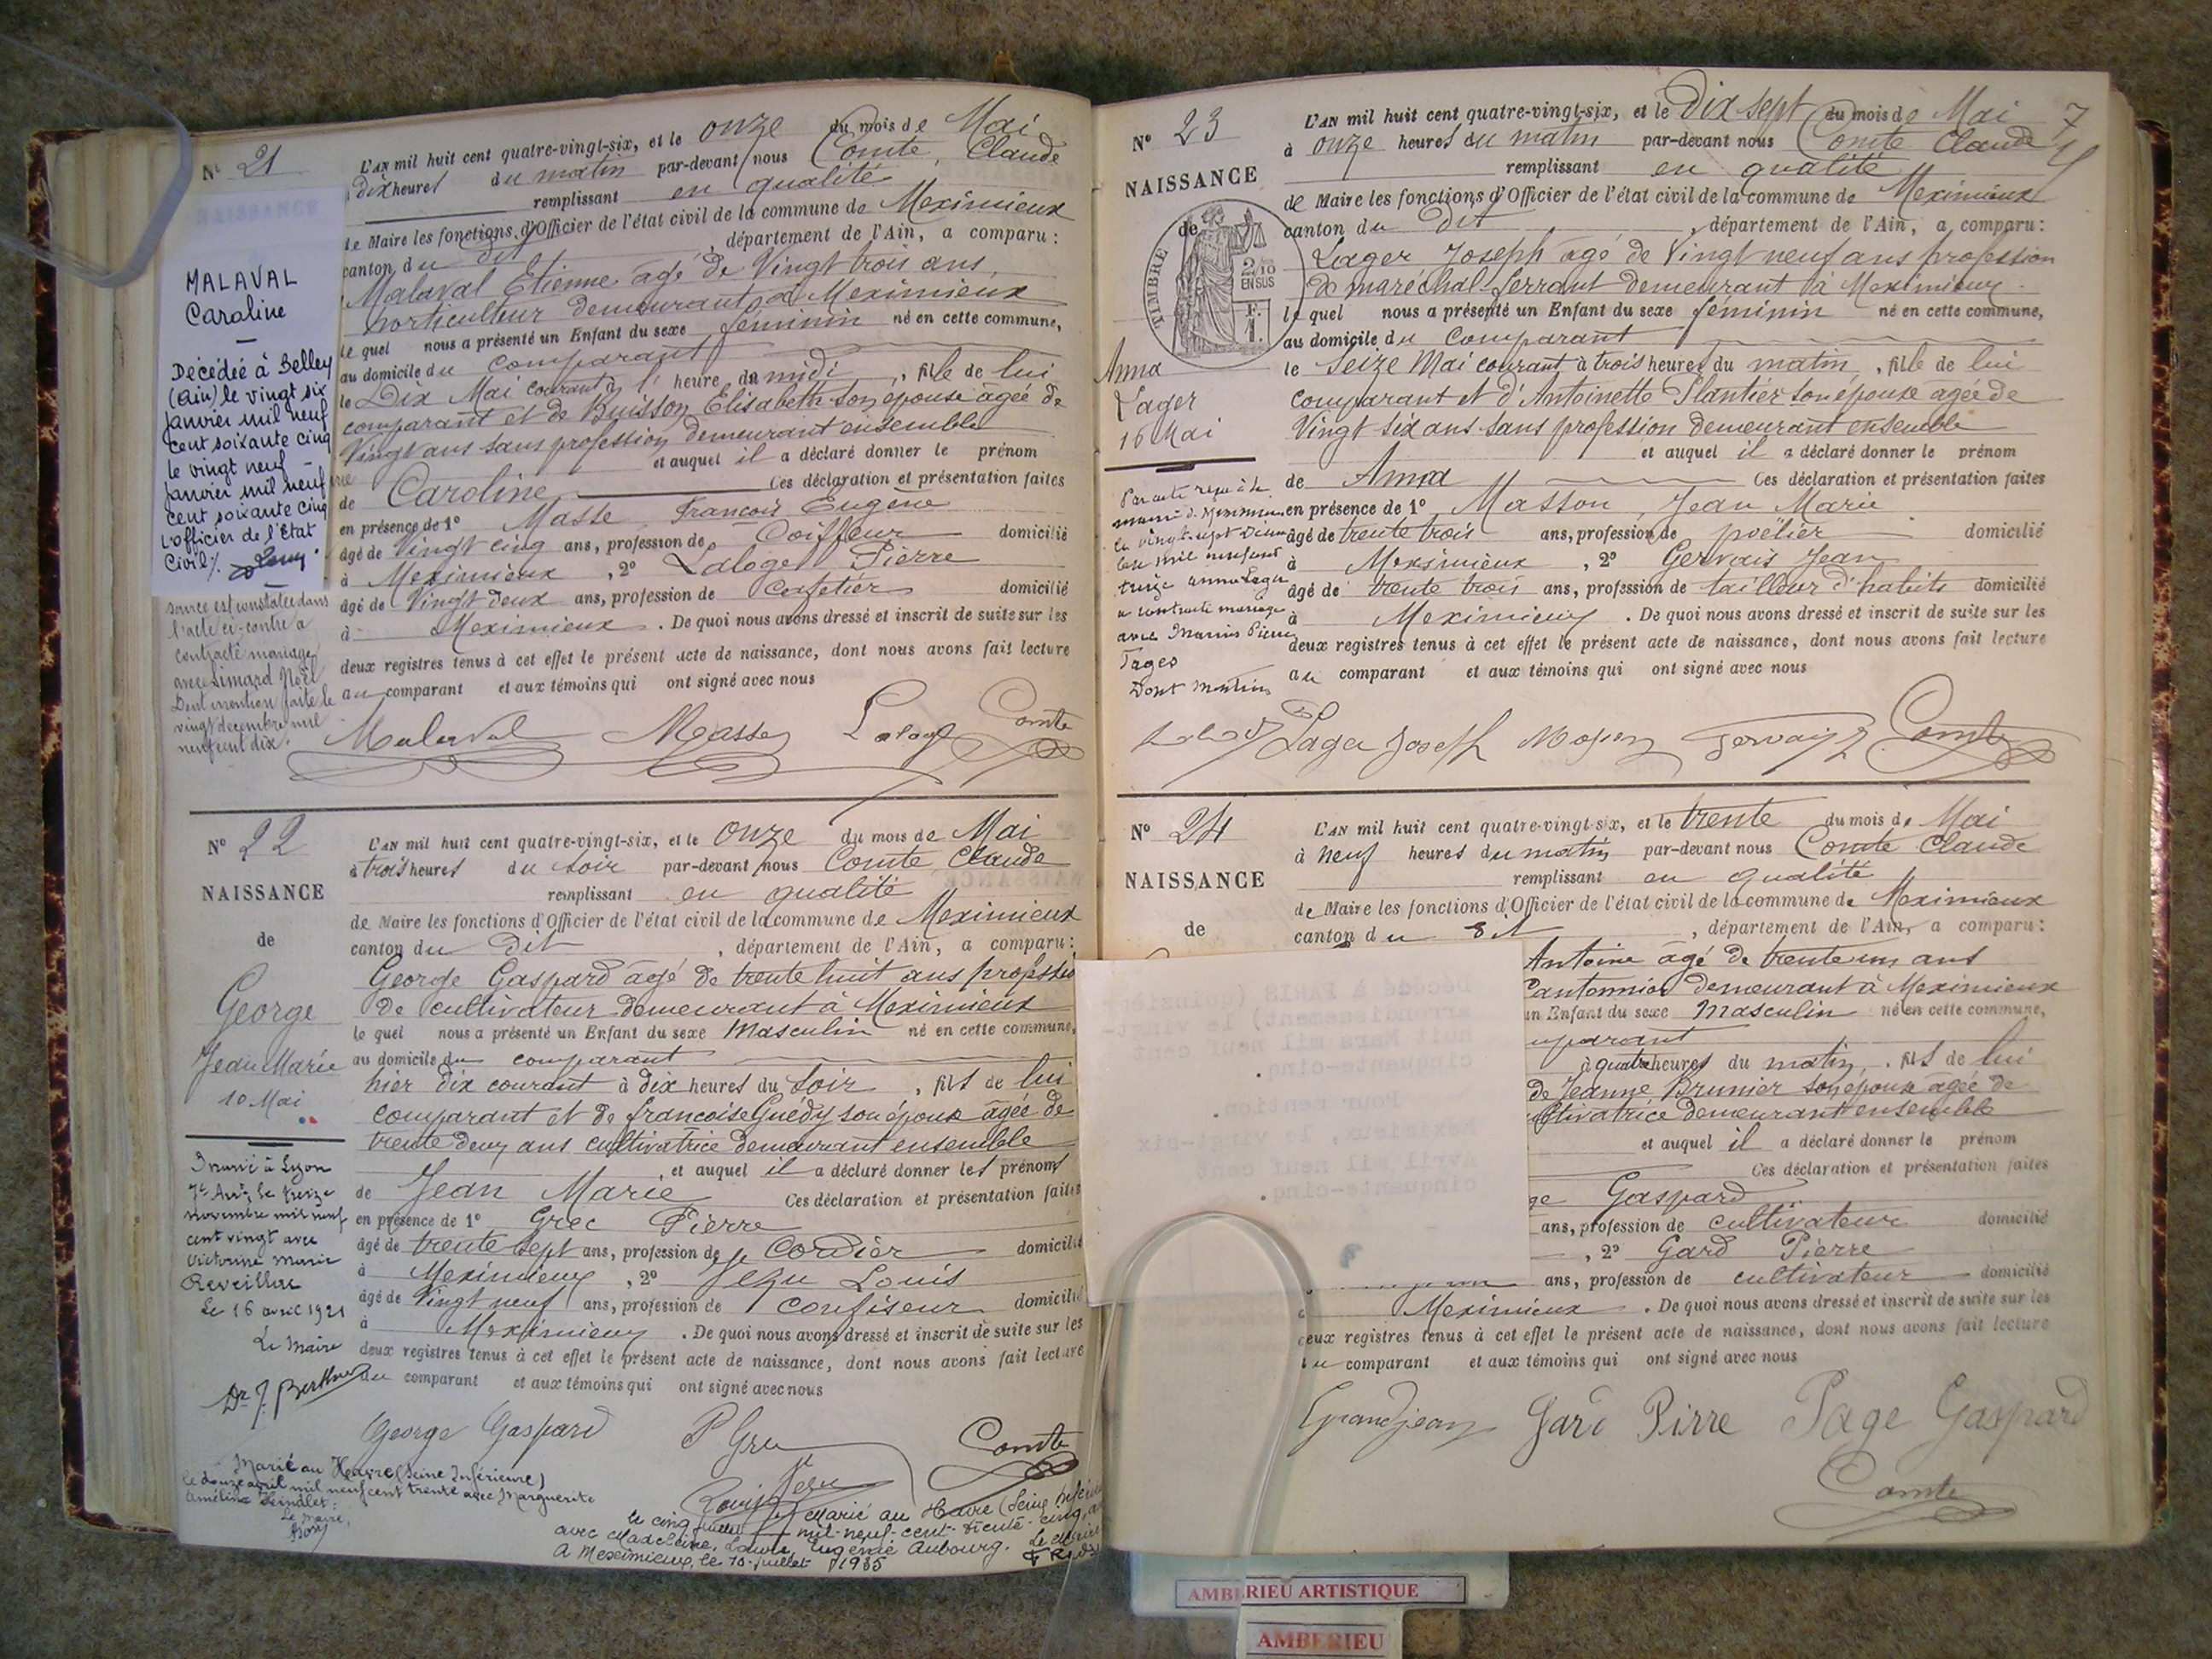 N° 21
L'AN mil huit cent quatre-vingt-six, et le onze du mois de Mai
dix heures du matin par-devant nous Comte, Claude
remplissant en qualité
de Maire les fonctions d'Officier de l'état civil de la commune de Meximieux
canton du dit, département de l'Ain, a comparu :
Malaval Etienne agé de Vingt trois ans,
horticulteur demeurant à Meximieux
le quel nous a présenté un Enfant du sexe féminin né en cette commune,
au domicile du comparant
le Dix Mai courant à l' heure de midi, fille de lui
comparant et de Buisson Elisabeth son épouse âgée de
Vingt ans sans profession demeurant ensemble
et auquel il a déclaré donner le prénom
de Caroline Ces déclaration et présentation faites
en présence de 1° Masse François Eugène
âgé de Vingt cinq ans, profession de Coiffeur domicilié
à Meximieux, 2° Laloge Pierre
âgé de Vingt deux ans, profession de Cafetier domicilié
à Meximieux. De quoi nous avons dressé et inscrit de suite sur les
deux registres tenus à cet effet le présent acte de naissance, dont nous avons fait lecture
au comparant et aux témoins qui ont signé avec nous
Malaval Masse Laloge Comte
MALAVAL
Caroline
Décédée à Belley
(Ain) le vingt six
janvier mil neuf
cent soixante cinq
le vingt neuf
janvier mil neuf
cent soixante cinq
L'officier de l'Etat
Civil /.
sance est constatée dans
l'acte ci-contre a
contracté mariage
avec Simard Noël
Dont mention faite le
vingt decembre mil
neuf cent dix.
N° 22
NAISSANCE
de
George
Jean Marie
10 Mai
L'AN mil huit cent quatre-vingt-six, et le onze du mois de Mai
à trois heures du soir par-devant nous Comte, Claude
remplissant en qualité
de Maire les fonctions d'Officier de l'état civil de la commune de Meximieux
canton du dit, département de l'Ain, a comparu :
George Gaspard âgé de trente huit ans professio
de cultivateur demeurant à Meximieux
le quel nous a présenté un Enfant du sexe Masculin né en cette commune,
au domicile du comparant
hier dix courant à dix heures du soir, fils de lui
comparant et de francoise Guedy son épouse âgée de
trente deux ans cultivatrice demeurant ensemble
et auquel il a déclaré donner les prénoms
de Jean Marie Ces déclaration et présentation faites
en présence de 1° Grec Pierre
âgé de trente sept ans, profession de Cordier domicilié
à Meximieux, 2° Jehu Louis
âgé de Vingt neuf ans, profession de confiseur domicilié
à Meximieux. De quoi nous avons dressé et inscrit de suite sur les
deux registres tenus à cet effet le présent acte de naissance, dont nous avons fait lecture
au comparant et aux témoins qui ont signé avec nous
George Gaspard P Grec Comte
Louis Jehu
à Lyon
7e Arrt le treize
novembre mil neuf
cent vingt avec
Victorine Marie
Reveillac
Le 16 avril 1921
Le Maire
Dr J.
Marié au Havre (Seine Inférieure)
le douze avril mil neuf cent trente avec Marguerite
Le Maire,
Marié au Havre (Seine
le cinq juillet mil-neuf-cent-trente-cinq
avec Madeleine, Louise, Eugénie Aubourg. Le Maire
A Meximieux, le 10 juillet 1935
7
N° 23
NAISSANCE
de
TIMBRE
2/10
EN SUS
F.
1.
Anna
Lager
16 Mai
L'AN mil huit cent quatre-vingt-six, et le Dix sept du mois de Mai
à onze heures du matin par-devant nous Comte Claude
remplissant en qualité
de Maire les fonctions d'Officier de l'état civil de la commune de Meximieux
canton du Dit, département de l'Ain, a comparu :
Lager Joseph agé de Vingt neuf ans profession
de maréchal ferrant demeurant à Meximieux
le quel nous a présenté un Enfant du sexe féminin né en cette commune,
au domicile du comparant
le seize Mai courant à trois heures du matin, fille de lui
comparant et d'Antoinette Plantier son épouse agée de
Vingt six ans sans profession demeurant ensemble
et auquel il a déclaré donner le prénom
de Anna Ces déclaration et présentation faites
en présence de 1° Masson, Jean Marie
âgé de trente trois ans, profession de poêlier domicilié
à Meximieux, 2° Gervais Jean
âgé de trente trois ans, profession de tailleur d'habits domicilié
à Meximieux. De quoi nous avons dressé et inscrit de suite sur les
deux registres tenus à cet effet le présent acte de naissance, dont nous avons fait lecture
au comparant et aux témoins qui ont signé avec nous
Lager Joseph Masson Gervais J Comte
Par acte reçu à la
mairie de Meximieux
le vingt-sept
mil neuf cent
treize Anna Lager
a contracté mariage
avec Marius Pierre
Tageo
Dont mention
N° 24
NAISSANCE
de
L'AN mil huit cent quatre-vingt-six, et le trente du mois de Mai
à neuf heures du matin par-devant nous Comte Claude
remplissant en qualité
de Maire les fonctions d'Officier de l'état civil de la commune de Meximieux
canton du dit, département de l'Ain, a comparu :
Antoine âgé de trente un ans
Cantonnier demeurant à Meximieux
un Enfant du sexe Masculin né en cette commune,
mparant
à quatre heures du matin, fils de lui
de Jeanne Brunier son épouse agée de
ltivatrice demeurant ensemble
et auquel il a déclaré donner le prénom
Ces déclaration et présentation faites
ge Gaspard
ans, profession de cultivateur domicilié
, 2° Gard Pierre
ans, profession de cultivateur domicilié
Meximieux. De quoi nous avons dressé et inscrit de suite sur les
deux registres tenus à cet effet le présent acte de naissance, dont nous avons fait lecture
au comparant et aux témoins qui ont signé avec nous
Grandjean Gard Pirre Page Gaspard
Comte
AMBERIEU ARTISTIQUE
AMBERIEU